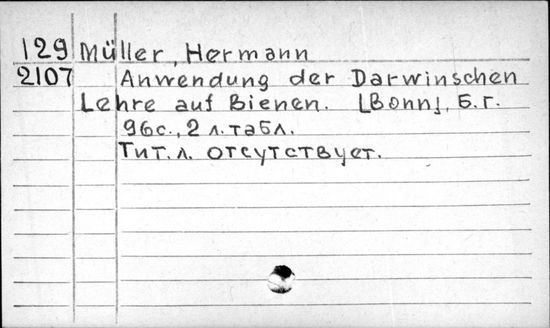 129 Müller, Hermann
2107 Anwendung der Darwinschen
Lehre auf Bienen. [Bonn], б. г.
96 с., 2 л. табл.
Тит. л. отсутствует.